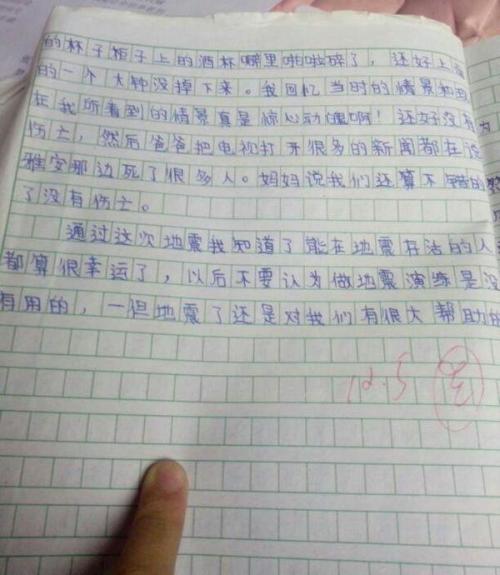 的杯子柜子上的酒杯噼里啪啦碎了，还好上面
的一个大钟没掉下来。我回忆当时的情景和现
在我所看到的情景真是惊心动魄啊！还好没有
伤亡，然后爸爸把电视打开很多的新闻都在说
雅安那边死了很多人。妈妈说我们还算不错的
了没有伤亡。
通过这次地震我知道了能在地震存活的人
都算很幸运了，以后不要认为做地震演练是没
有用的，一但地震了还是对我们有很大帮助的
12.5